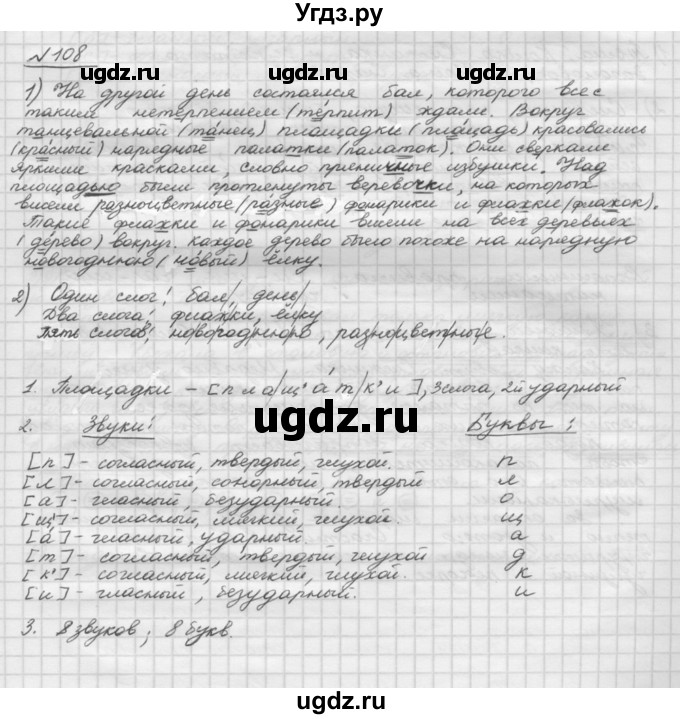 Угдз.ру
№108
1) На другой день состоялся бал, которого все с
таким нетерпением (терпит) ждали. Вокруг
танцевальной (танец) площадки (площадь) красовались
(красный) нарядные палатки (палаток). Они сверкали
яркими красками, словно пряничные избушки. Над
площадью были протянуты веревочки, на которых
висели разноцветные (разные) фонарики и флажки (флажок).
Такие флажки и фонарики висели на всех деревьях
(дерево) вокруг. Каждое дерево было похоже на нарядную
новогоднюю (новый) ёлку.
2) Один слог: бал/, день/
Два слога: флаж/ки, ёл/ку
пять слогов: но/во/год/ню/ю, раз/но/цвет/ны/е.
1. Площадки – [п л а/щ' а́ т/к' и], 3 слога, 2й ударный
2. Звуки: Буквы:
[п] - согласный, твердый, глухой. п
[л] - согласный, сонорный, твердый л
[а] - гласный, безударный. о
[щ'] - согласный, мягкий, глухой. щ
[а́] - гласный, ударный. а
[т] - согласный, твердый, глухой д
[к'] - согласный, мягкий, глухой. к
[и] - гласный, безударный. и
3. 8 звуков; 8 букв.
ugdz.ru